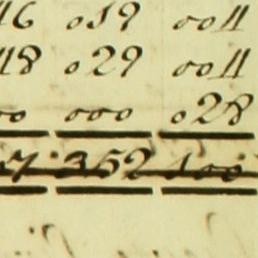 46 019 0011
48 029 0011
00 000 028
7 352 100